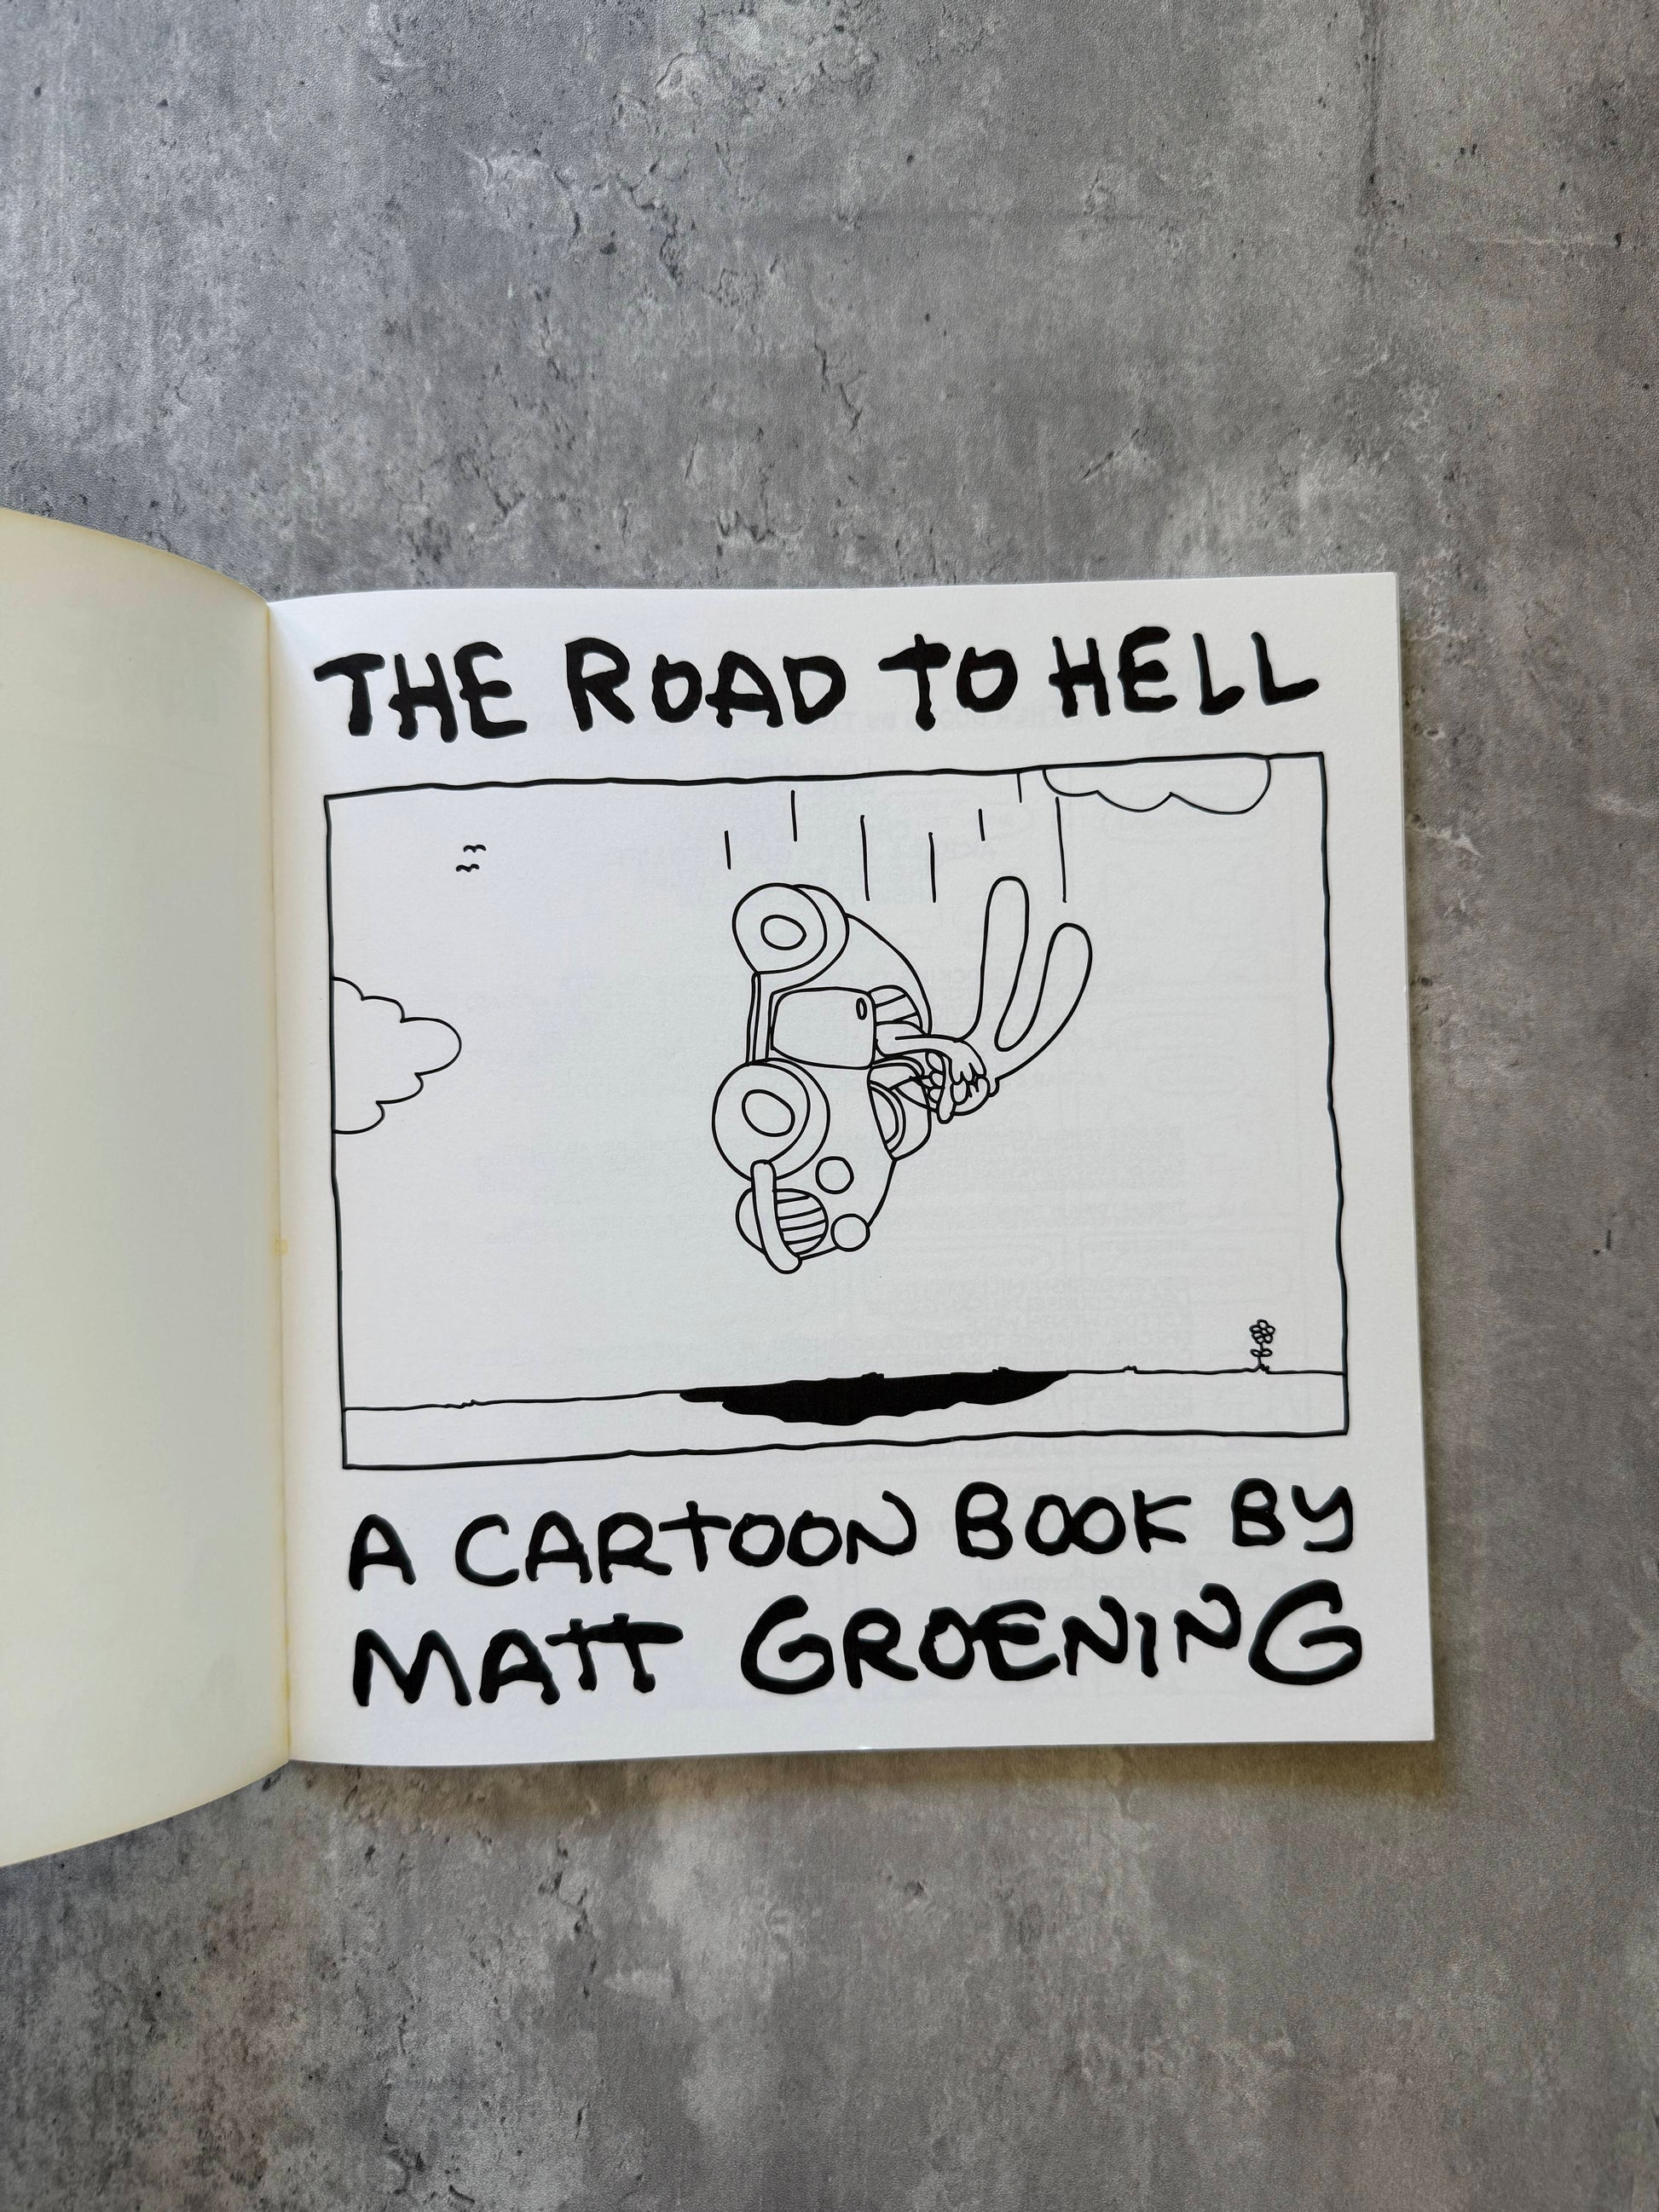 THE ROAD TO HELL
A CARTOON BOOK BY
MATT GROENING